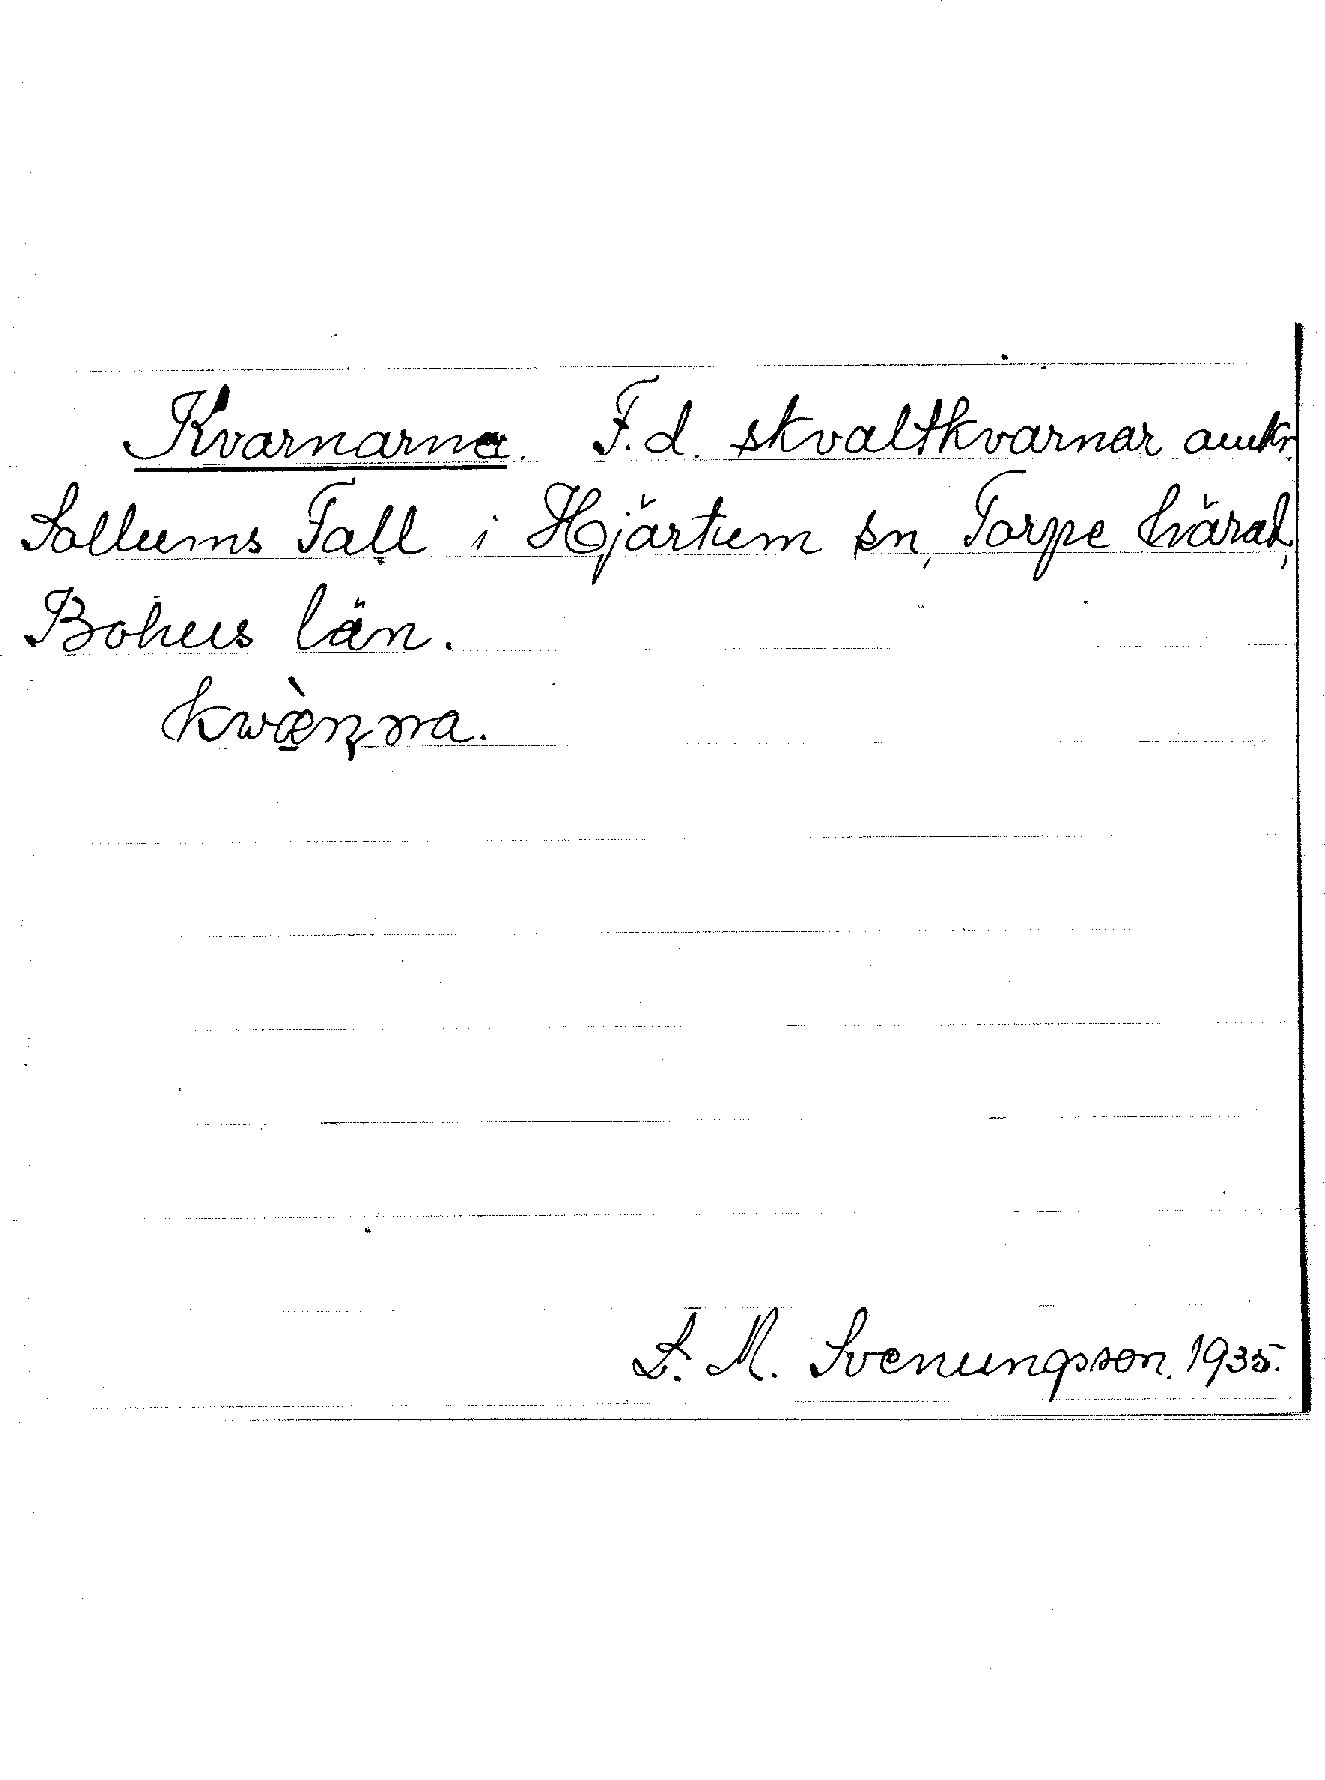 Kvarnarna. F.d. skvaltkvarnar
Sollums Fall i Hjärtum sn, Torpe härad,
Bohus län.
kwæ̀ṇna.
S. M. Svenungsson. 1935.